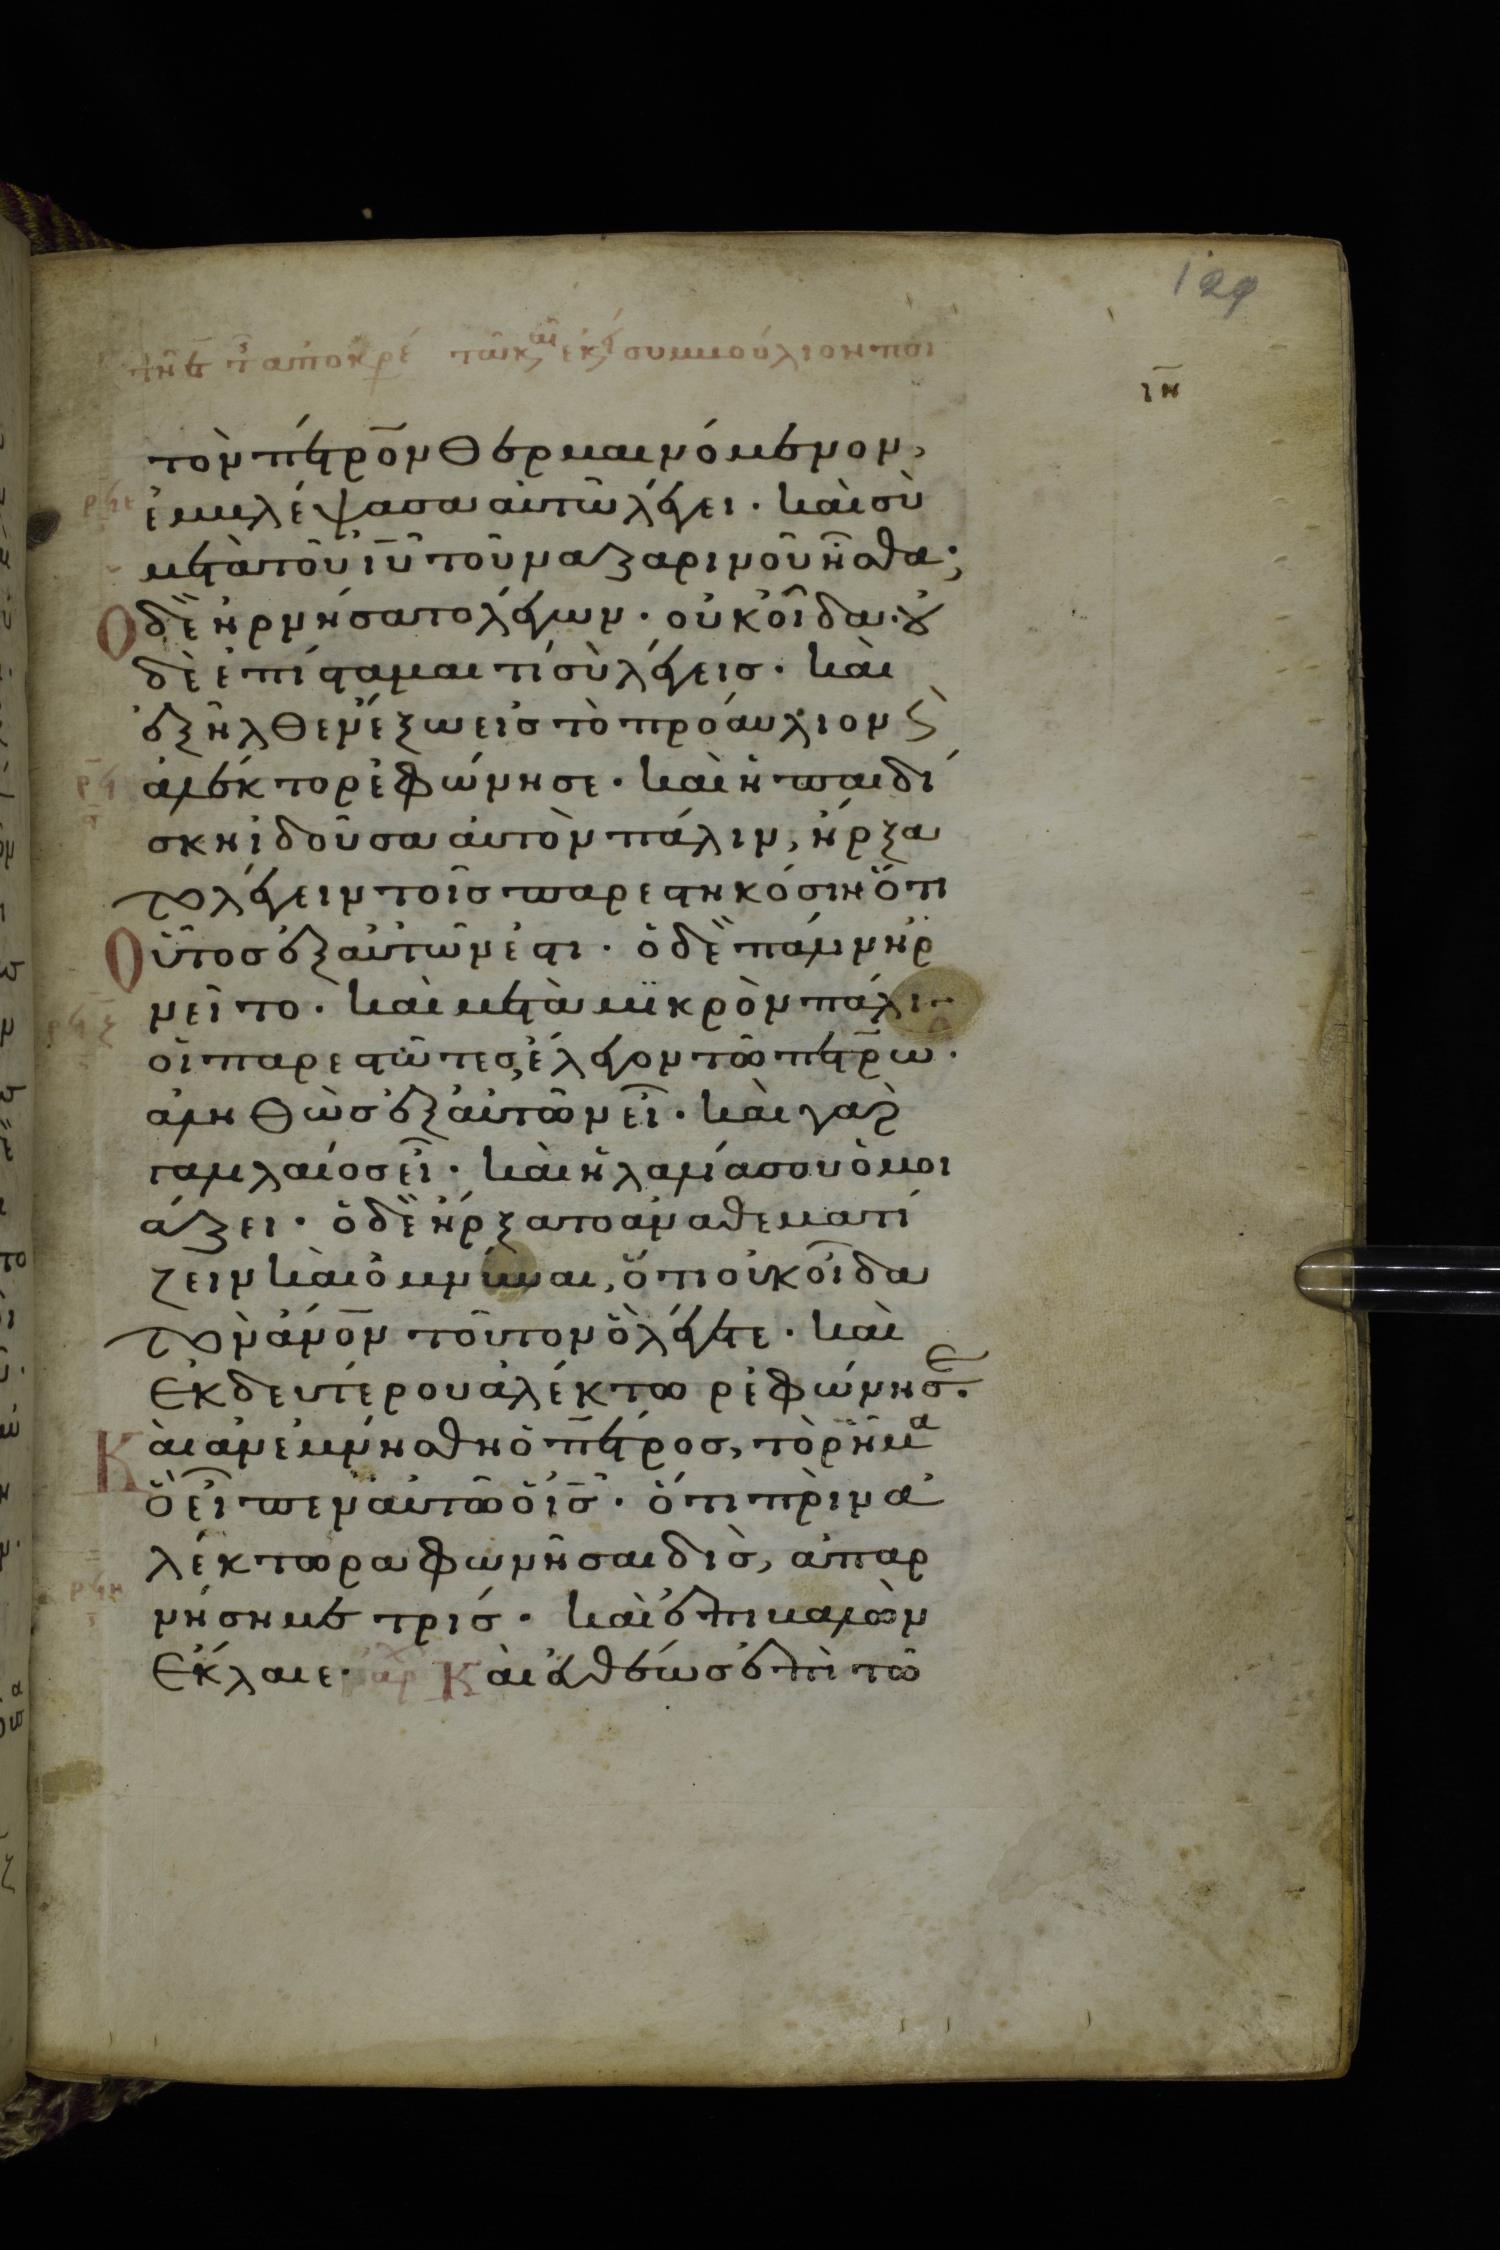 129
ιη
τὸν πέτρον θερμαινόμενον,
ἐμβλέψασα αὐτῶ λέγει · καὶ σὺ
μετὰ τοῦ ιυ τοῦ ναζαρινοῦ ἦσθα;
Ο δὲ ἠρνήσατο λέγων · οὐκ οἶδα · ȣ
δὲ ἐπίσταμαι τί σὺ λέγεις · καὶ
ἐξῆλθεν ἔξω εἰς τὸ προαύλιον ϛ
ἀλέκτορ ἐφώνησε · καὶ ἡ παιδί
σκη ἰδοῦσα αὐτὸν πάλιν, ἤρξα
το λέγειν τοῖς παρεστηκόσιν ὅτι
Οὗτος ἐξ αὐτῶν ἐστι · ὁ δὲ πάλιν ἠρ
νεῖτο · καὶ μετὰ μικρὸν πάλι
οἱ παρεστῶτες, ἔλεγον τῶ πέτρω ·
ἀληθῶς ἐξ αὐτῶν εἶ · καὶ γὰρ
γαλιλαίος εἶ · καὶ ἡ λαλιά σου ὁμοι
άζει · ὁ δὲ ἤρξατο ἀναθεματί
ζειν καὶ ὀμνύναι, ὅτι οὐκ οἶδα
τὸν ἀνον τοῦτον ὃ λέγετε · καὶ
Ἐκ δευτέρου ἀλέκτωρ ἐφώνησε ·
Καὶ ἀνεμνήσθη ὁ πέτρος, τὸ ῥῆμα
ὃ εἶπεν αὐτῶ ὁ ις · ὅτι πρὶν ἀ
λέκτωρα φωνῆσαι δὶς, ἀπαρ
νήση με τρίς · καὶ ἐπιβαλὼν
Ἔκλαιε · ἀρχ Καὶ εὐθέως ἐπὶ τὸ